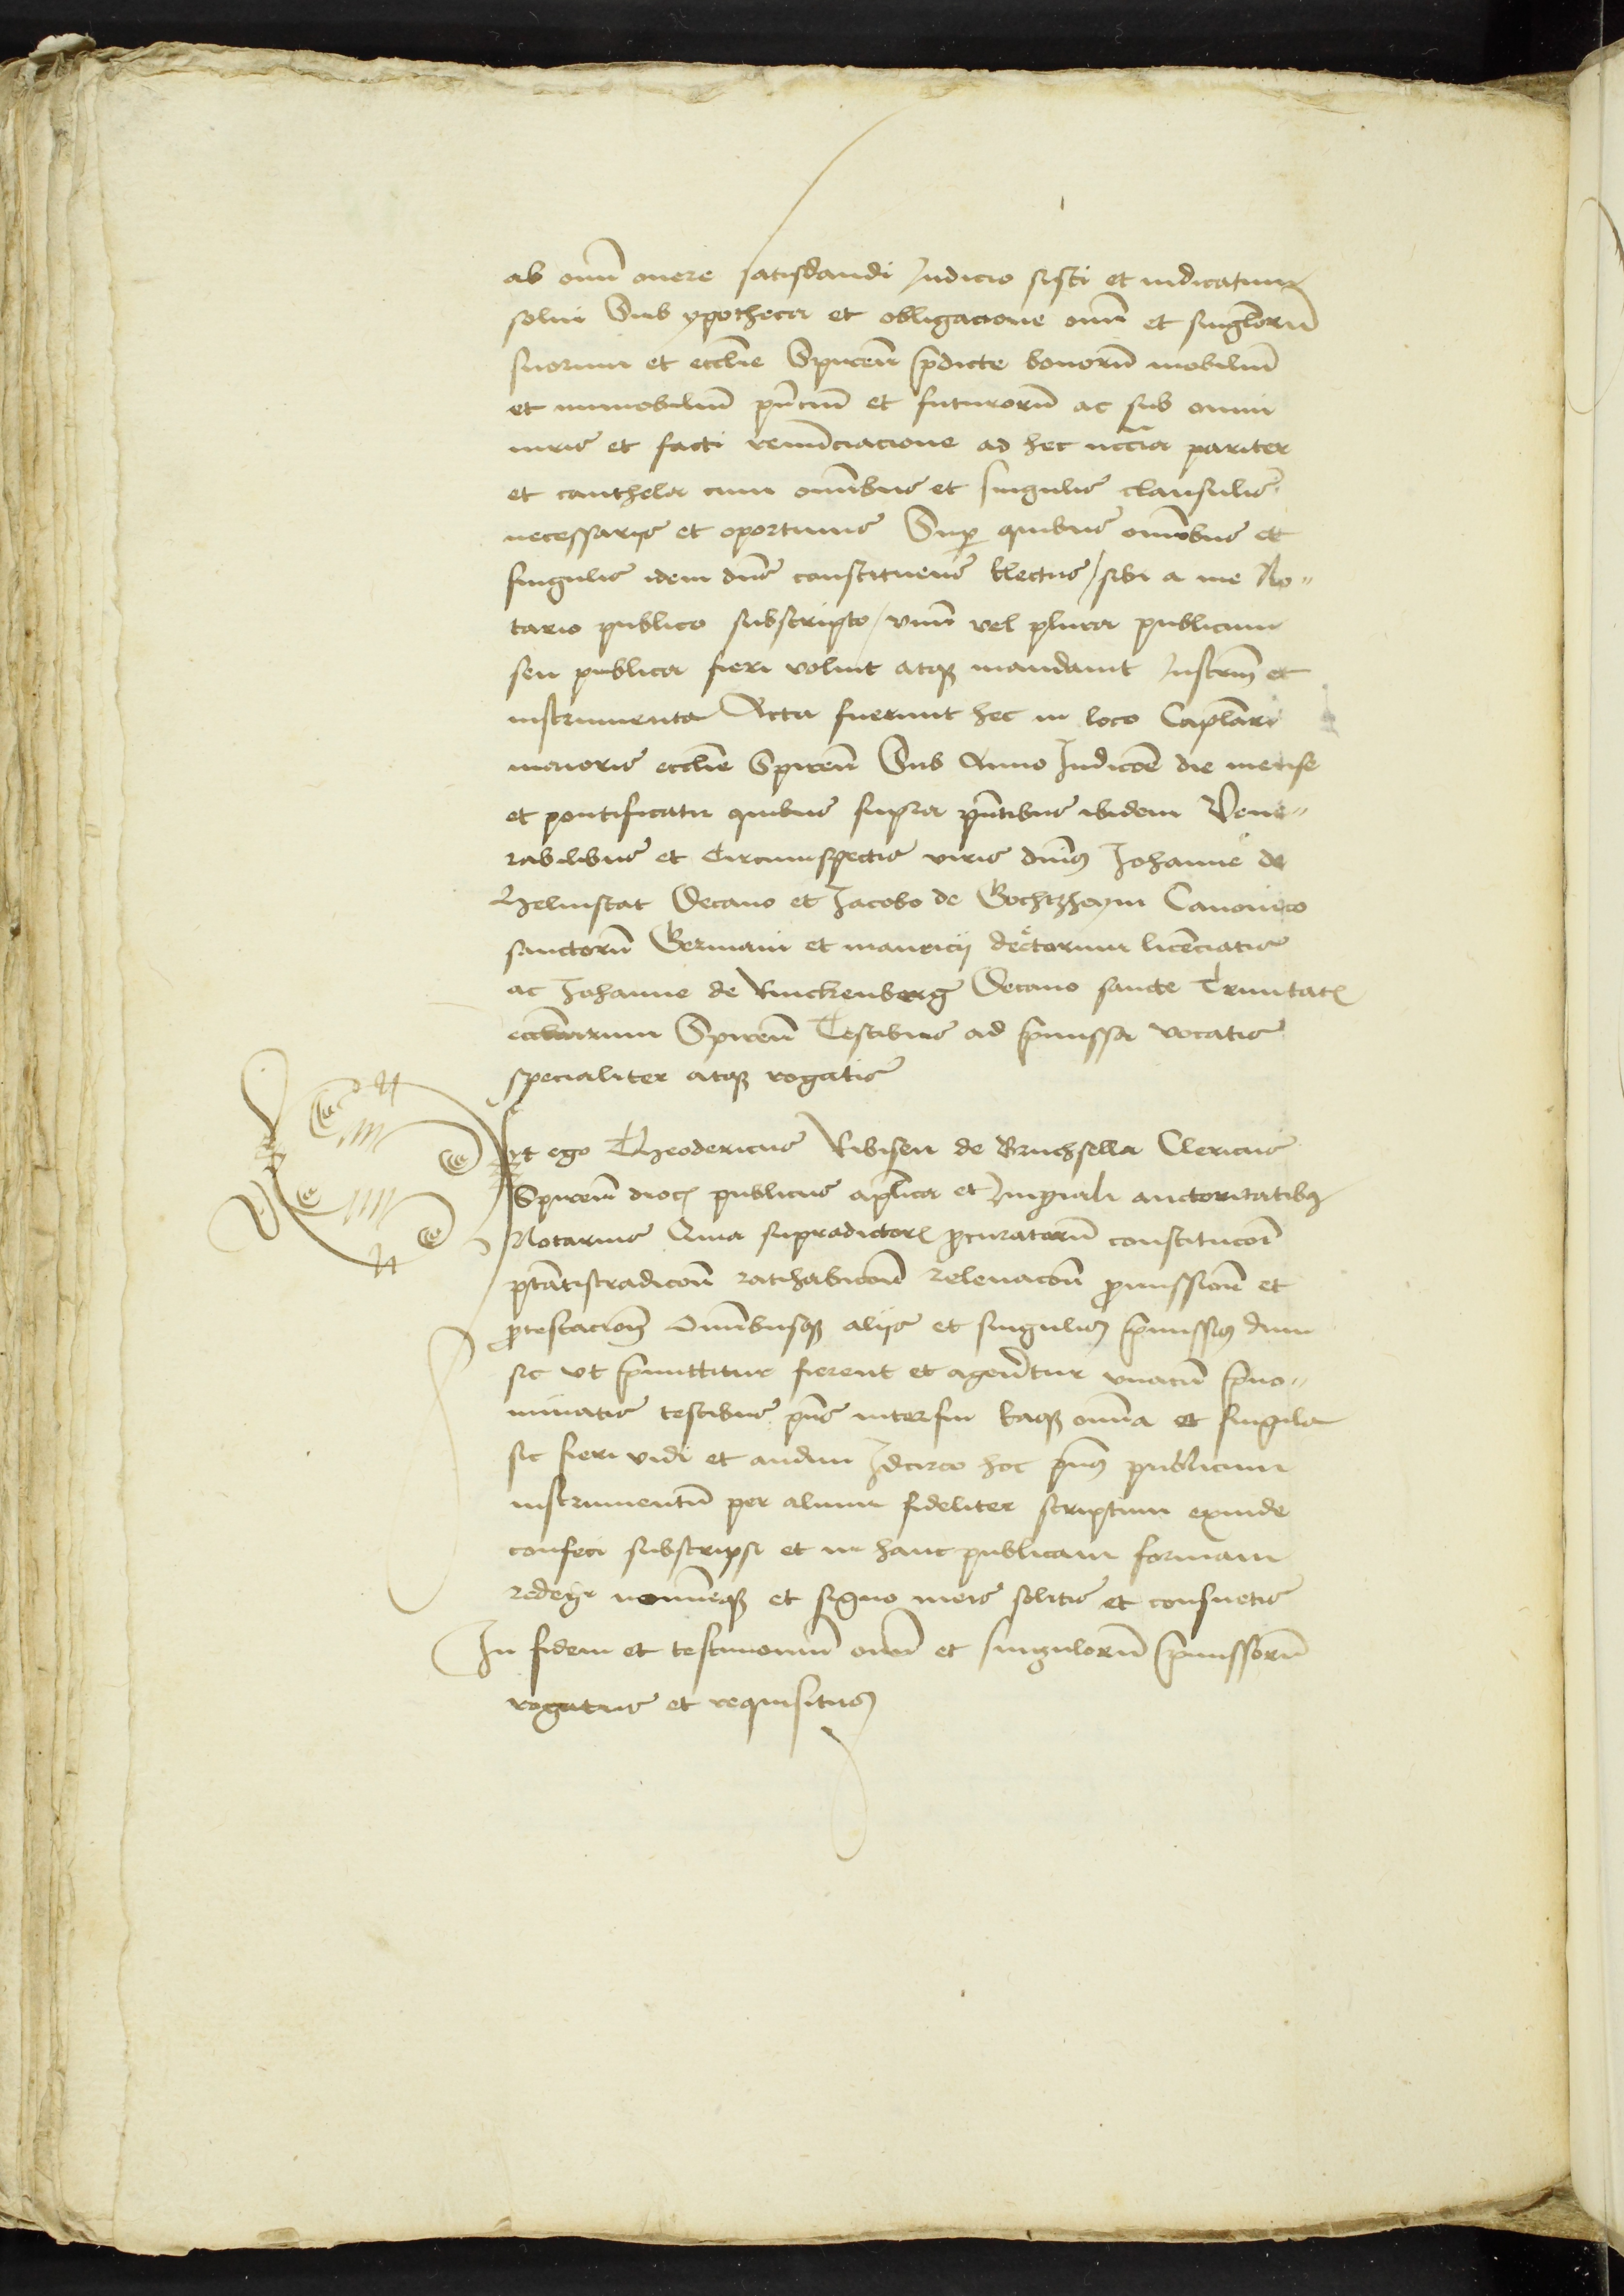 ab om̄i onere satisdandi Judicio sisti et iudicatum
solui Sub ypotheca et obligacione om̄i et singlorū
suorum et ecclie Spireñ p̄dicte bonorū mobiliū
et immobiliū pn̄ciū et futurorū ac sub omni
iuris et facti renūciacione ad hec nccīa pariter
et cauthela cum om̄ibus et singulis clausulis
necessarijs et oportunis Sup quibus om̄ibus et
singulis idem dn̄s constituens Electus / sibi a me No„
tario publico subscripto / vnū vel plura publicum
seu publica fieri voluit atqȝ mandauit Instrm̄ et
instrumenta Acta fuerunt hec in loco Caplari
maioris ecclie Spireñ Sub Anno Indicōe die mense
et pontificatu quibus supra pn̄tibus ibidem Vene„
rabilibus et Circumspectis viris dn̄is Johanne de
Helmstat Decano et Jacobo de Gochtzheym Canonico
sanctorū Germani et mauricij decretorum licēciatis
ac Johanne de Ruckenberg Decano sancte Trinitatꝭ
ecclesiarum Spireñ Testibus ad p̄missa vocatis
specialiter atqȝ rogatis
Et ego Theodericus Ribisen de Bruchsella Clericus
Spireñ diocꝭ publicus aplica et Imperiali auctoritatibȝ
Notarius Quia supradictorꝭ procuratorū constitucōi
ptātistradicōi ratihabicōi releuacōi promissiōi et
protestacioni Omībusqȝ alijs et singulis p̄missis dum
sic vt p̄mittitur fierent et agerētur vnacū p̄no„
minatis testibus pn̄s interfui Eaqȝ omīa et singula
sic fieri vidi et audiui Idcirco hoc pn̄s publicum
instrumentū per alium fideliter scriptum exinde
confeci subscripsi et in hanc publicam formam
redegi nomīeqȝ et signo meis solitis et consuetis
In fidem et testimoniū om̄i et singulorū p̄missorū
rogatus et requisitus